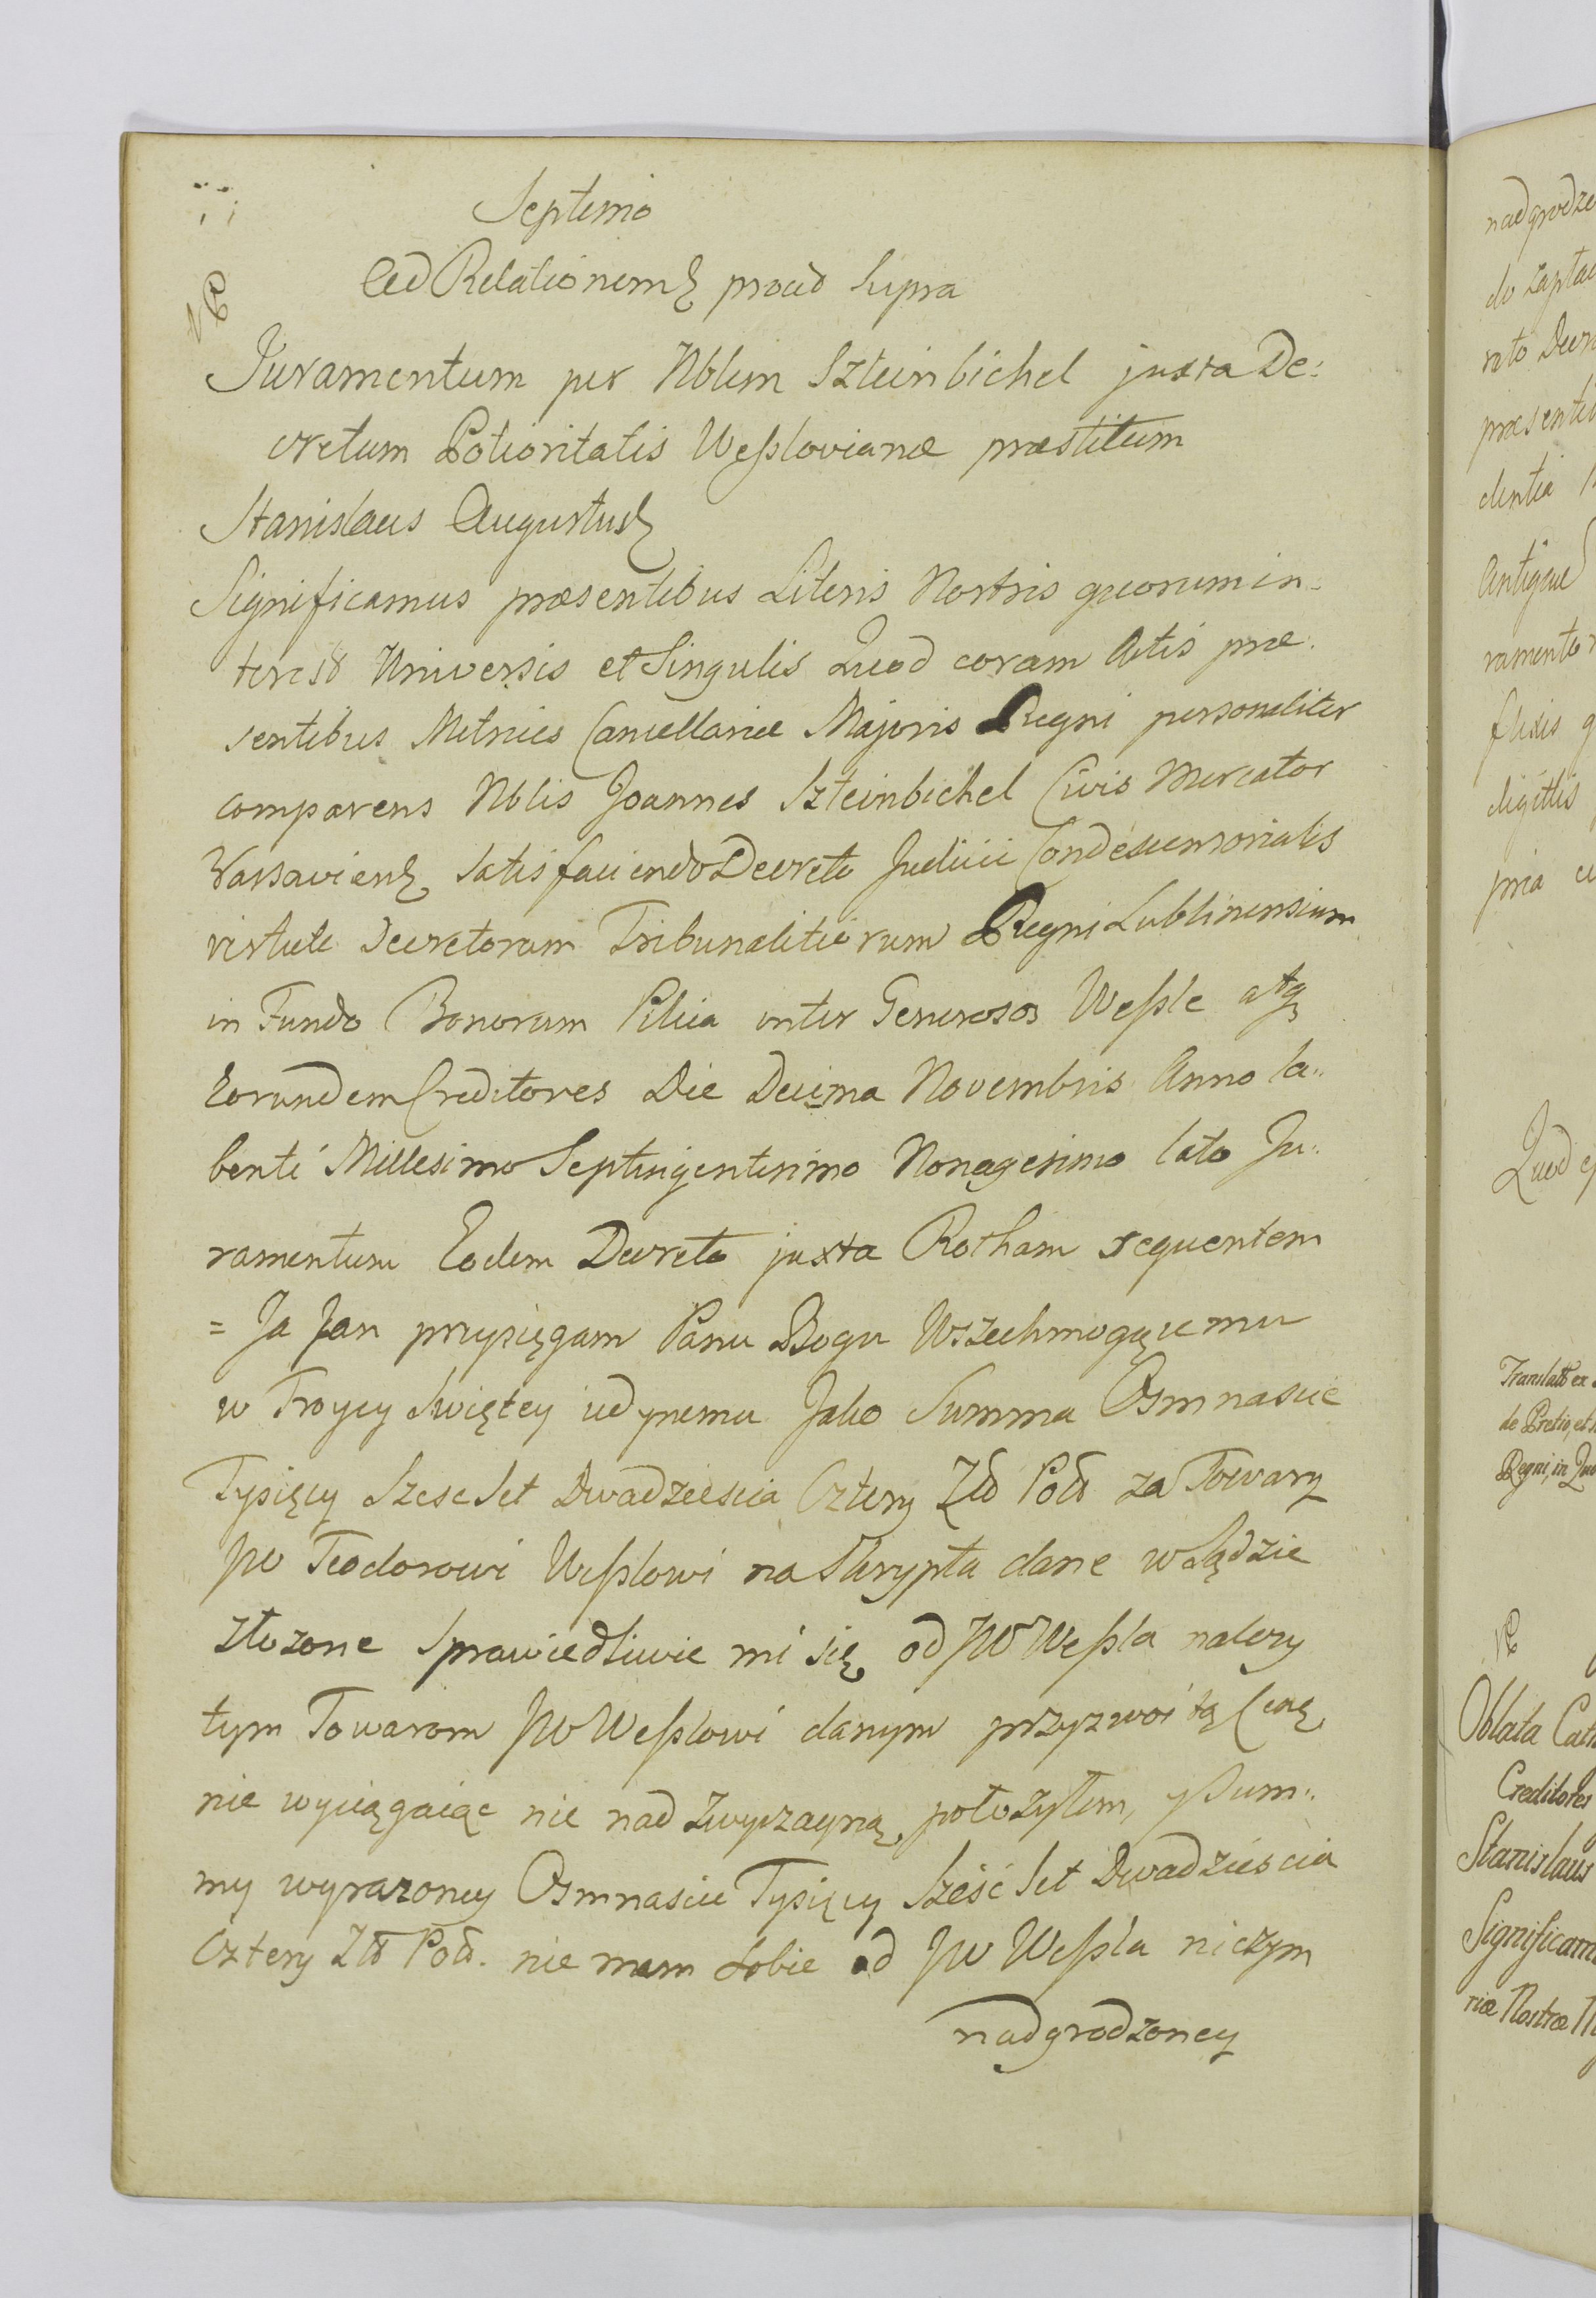 Septimo
Ad Relationem prout Supra
Juramentum per Nblem Szteinbichel juxta De:
cretum Potioritatis Weßlovianæ præstitum
Stanislaus Augustus
Significamus præsentibus Literis Nostris quorum in-
terest Universis et Singulis Quod coram Actis præ-
sentibus Metrices Cancellariæ Majoris Regni personaliter
comparens Nblis Joannes Szteinbichel Civis Mercator
Varsavien satisfaciendo Decreto Judicii Condescensorialis
virtute Decretorum Tribunalitiorum Regni Lublinensium
in Fundo Bonorum Pilica inter Generosos Weßle atq
Eorundem Creditores Die Decima Novembris Anno la-
benti Millesimo Septingentesimo Nonagesimo lato Ju-
ramentum Eodem Decreto juxta Rotham sequentem
= Ja Jan przysięgam Panu Bogu Wszechmogącemu
w Troycy Swiętey iedynemu Jako Summa Osmnascie
Tysięcy Szesc Set Dwadziescia Cztery Zło Pols za Towary
JW Teodorowi Weßlowi na Skrypta dane w Sądzie
złozone Sprawiedliwie mi się od JW Weßla nalezy
tym Towarom JW Weßlowi danym przyzwoitą Cenę
nie wyciągaiąc nie nad zwyczayną, połozyłem, y Sum-
my wyrazoney Osmnascie Tysięcy Sześć Set Dwadziescia
Cztery Zło Pols. nie mam sobie od JW Weßla niczym
nadgrodzoney
nadgrodze
do zapłac
rato Decr
præsenti
dentia
Antiquæ
ramento
flexis
digitis
pria
Quod
Translatt ex
de Pretio, et
Regni, in
Oblata
Creditores
Stanislaus
Significam
riæ Nostræ